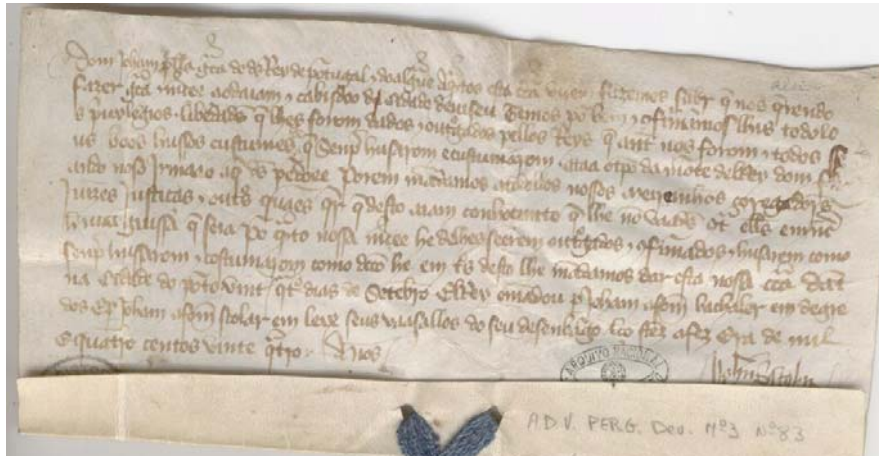 Dom Joham pella graça de ds Rey de portugal e do algarve A qntos esta carta virem fazemos saber q nos qrendo
fazer graça e mercee ao daiam e cabijdoo da Cidade de viseu Teemos por bem e cfirmamos lhis todolos
s privylegios e liberdades q lhes forem dados e outorgados pellos Reys q ant nos forom e todos se
us boos hussos e custumes q senpre husarom e custumarom ataa o tpo da morte delRey dom fern
ando nosso Irmaão a q ds perdoe Porem mandamos a todollos nossos meyrinhos corregedores
Juizes Justiças e outros quaes qr q desto aiam conhocimento q lhe nõ vaades contra elles em nen
hũa guissa q seia por qnto nossa mercee he de lhe seerem outorgados e cfirmados e husarem como
senpre hussarom e costumarom como dicto he em ts desto lhe mandamos dar esta nossa carta dant
na Cidade do porto vinte qtro dias de Setebro ElRey o mandou per Joham afom bachaler em degre
dos E per Joham afom scolar em leis seus vasallos do seu desenbargo a fez Era de mil
e quatro centos vinte qtro Anos
ARQUIVO NACIONAL
A.D.V. PERG. Dev. Mº3 Nº83